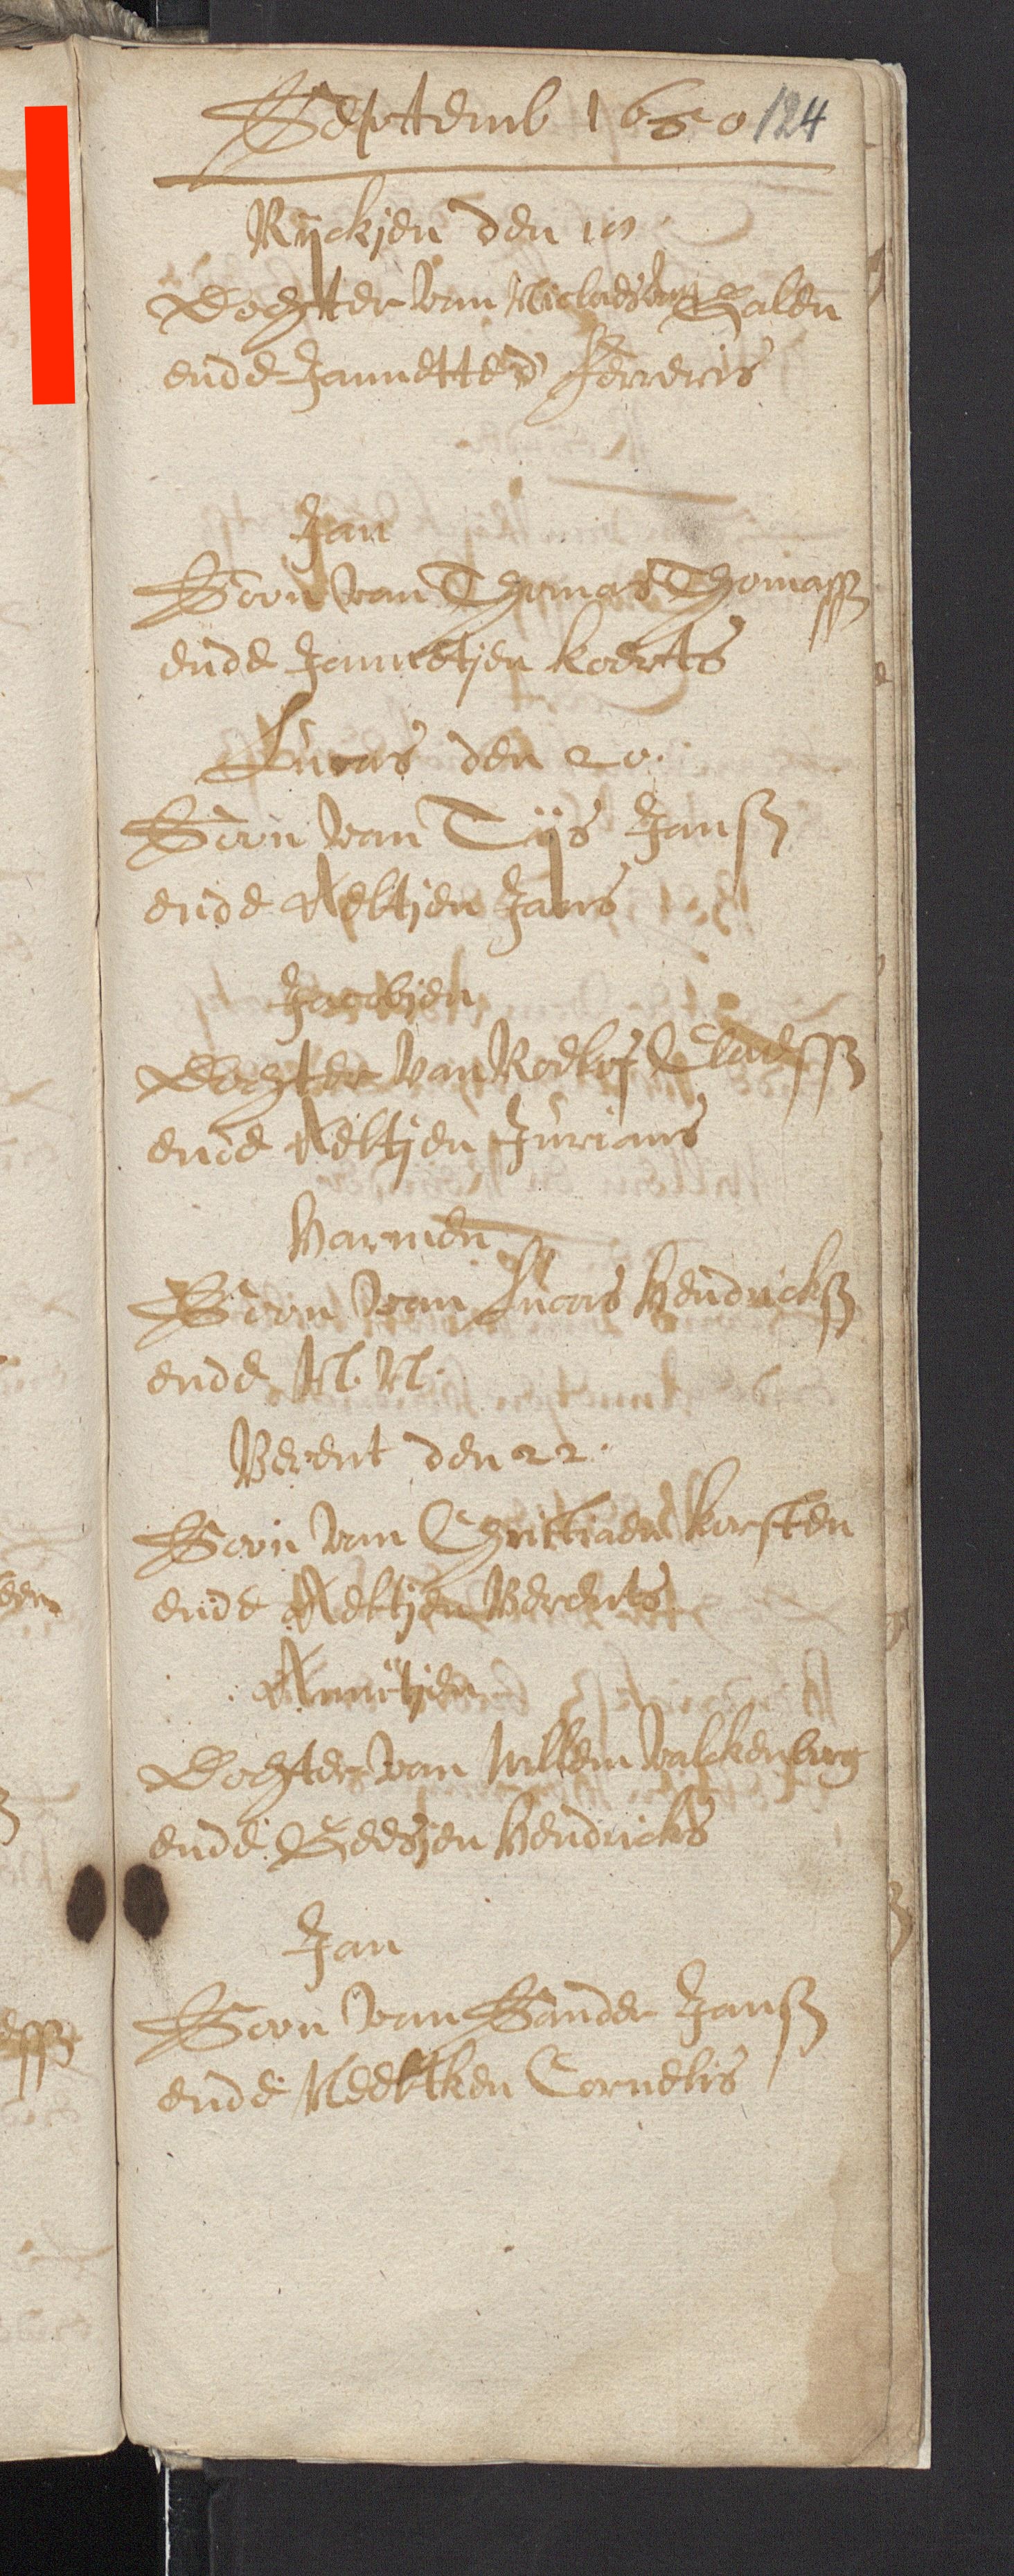 Septemb 1650 124
Rijckjen den 19
Dochter van Niclaes van Galen
ende Jannette Ferreris
Jan
Soon van Thomas Thomassz
ende Jannetjen Koerts
Lucas den 20.
Soon van Tijs Jansz
ende Aeltjen Jans
Jacobjen
Dochter van Roelof Claessz
ende Aeltjen Jurians
Harmen
Soon van Lucas Hendricksz
ende N. N.
Berent den 22.
Soon van Christiaen Korsten
ende Aeltjen Berents
Annetjen
Dochter van Willem Valckenburg
ende Geesjen Hendricks
Jan
Soon van Sander Jansz
ende Neeltken Cornelis